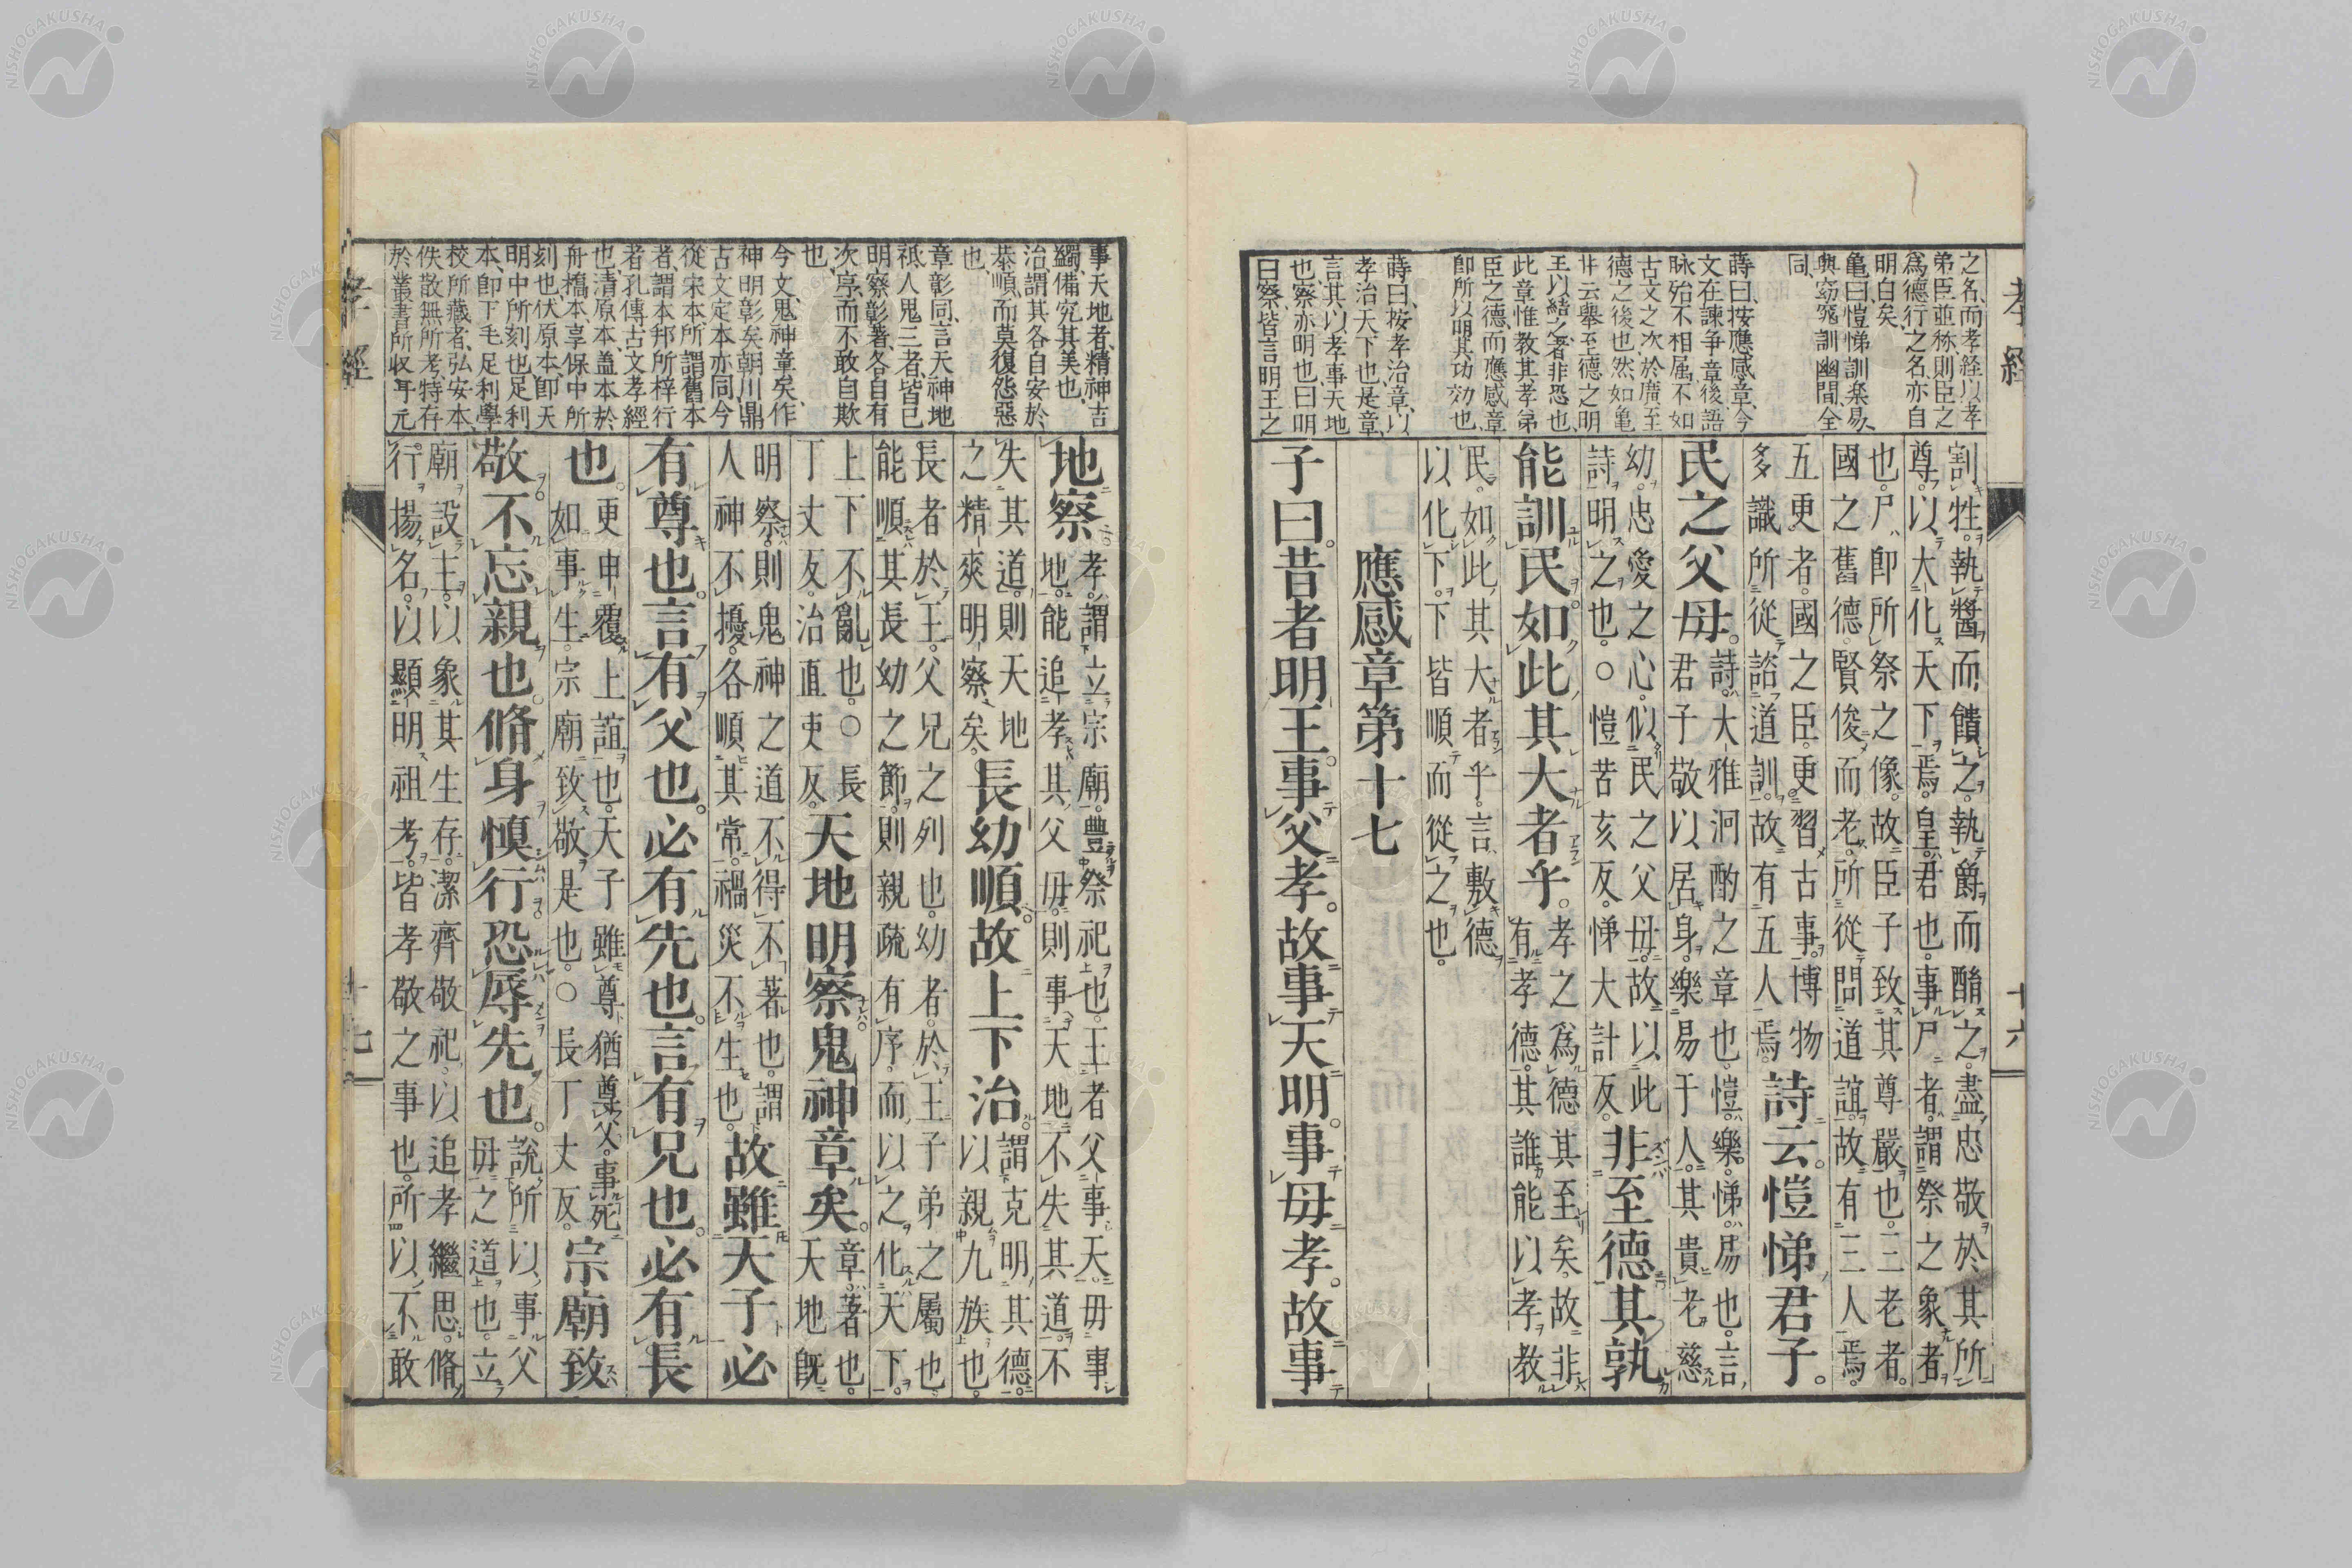 孝經
十六
之名、而孝経以孝
弟臣並称則臣之
爲德行之名亦自
明白矣、
亀曰、愷悌訓楽易、
與窈窕訓幽間、全
同、
蒔曰、按應感章、今
文在諫争章後、語
脉殆不相属、不如
古文之次於廣至
德之後也、然如亀
井云、舉至德之明
王以結之者、非恐也、
此章惟教其孝弟
臣之德、而應感章、
即所以明其功効也、
蒔曰、按孝治章、以
孝治天下也、是章、
言其以孝事天地
也、察亦明也、曰明
曰察、皆言明王之
割牲。執醬而饋之。執爵而酳之。盡忠敬於其所
尊。以大化天下焉。皇君也。事尸者。謂祭之象者
也。尸即所祭之像。故臣子致其尊嚴也。三老者。
國之舊德。賢俊而老。所從問道誼。故有三人焉。
五更者。國之臣。更習古事。博物
多識所從諮道訓。故有五人焉。
詩云。愷悌君子。
民之父母。
詩大雅泂酌之章也。愷樂。悌易也。言
君子敬以居身。樂易于人。其貴老慈
幼。忠愛之心。似民之父母。故以此
詩明之也。○愷苦亥反。悌大計反。
非至德其孰
能訓民如此其大者乎。
孝之爲德其至矣。故非
有孝德。其誰能以孝教
民。如此其大者乎。言敷德
以化下。下皆順而從之也。
應感章第十七
子曰。昔者明王。事父孝。故事天明。事母孝。故事
事天地者、精神吉
蠲、備究其美也、
治謂其各自安於
恭順、而莫復怨惡
也、
章彰同、言天神地
祇、人鬼三者、皆已
明察彰著、各自有
次序、而不敢自欺
也、
今文、鬼神章矣、作
神明彰矣、朝川鼎
古文定本亦同、今
從宋本、所謂舊本
者、謂本邦所梓行
者、孔傳古文孝經
也、清原本、盖本於
舟橋本、享保中所
刻也、伏原本、即天
明中所刻也、足利
本、即下毛足利學
校所藏者、弘安本、
佚散無所考、特存
於叢書所収耳、元
地察。
孝。謂立宗廟。豊祭祀也。王者父事天。母事
地。能追孝其父母。則事天地。不失其道。不
失其道。則天地
之精爽明察矣。
長幼順。故上下治。
謂克明其德。
以親九族也。
長者於王。父兄之列也。幼者。於王子弟之屬也。
能順其長幼之節。則親疏有序。而以之化天下。
上下不亂也。○長
丁丈反。治直吏反。
天地明察。鬼神章矣。
章著也。
天地既
明察。則鬼神之道不得不著也。謂
人神不擾。各順其常。禍災不生也。
故雖天子必
有尊也。言有父也。必有先也。言有兄也。必有長
也。
更申覆上誼也。天子雖尊。猶尊父。事死
如事生。宗廟致敬是也。○長丁丈反。
宗廟致
敬。不忘親也。脩身慎行。恐辱先也。
說所以事父
母之道也。立
廟設主。以象其生存。潔齊敬祀。以追孝繼思。脩
行揚名。以顯明祖考。皆孝敬之事也。所以不敢
孝經
十七
NISHOGAKUSHA